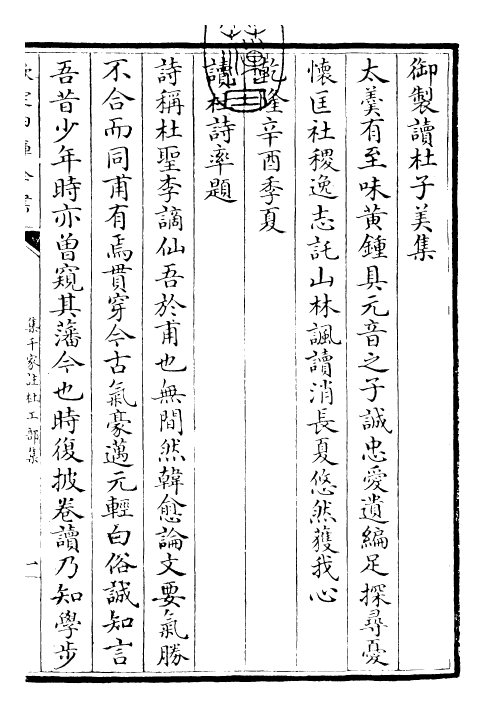 御製讀杜子美集
太羹有至味黄鍾具元音之子誠忠愛遺編足探尋憂
懷匡社稷逸志託山林諷讀消長夏悠然獲我心
乾隆辛酉季夏
讀杜詩率題
詩稱杜聖李謫仙吾於甫也無間然韓愈論文要氣勝
不合而同甫有焉貫穿今古氣豪邁元輕白俗誠知言
吾昔少年時亦曽窺其藩今也時復披卷讀乃知學步
集千家注杜工部集
一